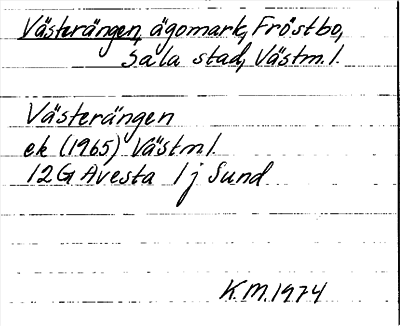 Västerängen, ägomark, Fröstbo,
Sala stad, Västm. l.
Västerängen
ek (1965) Västm l.
12G Avesta 1 j Sund
K.M. 1974